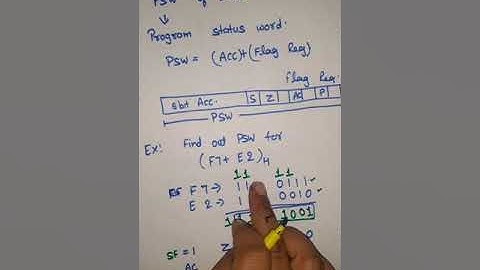 PSW
Program status word.
PSW = (Acc)+(Flag Reg)
Flag Reg.
8bit Acc. S Z AC P
PSW
Ex: Find out PSW for
(F7+ E2)H
1 1 1 1
F7→ 11 0111
E2→ 1 0010
1 1001
SF = 1 Z 0
AC